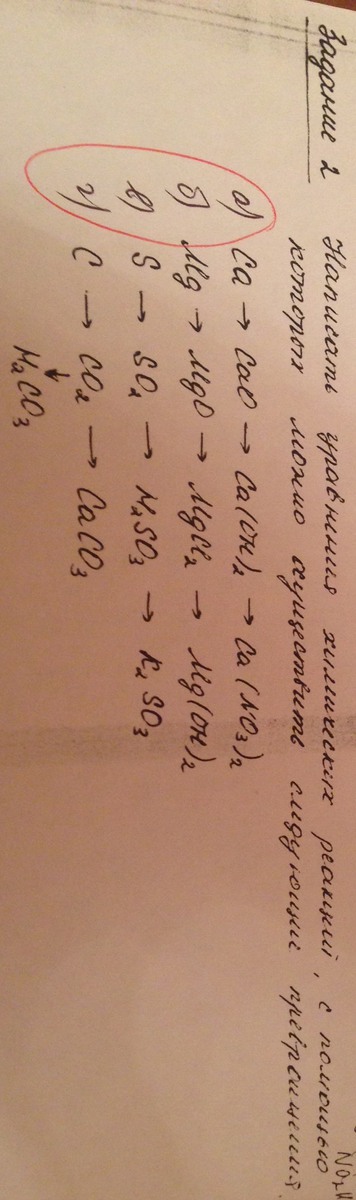 Задание 2 Написать уравнения химических реакций, с помощью
которых можно осуществить следующие превращения
а) Ca → CaO → Ca(OH)₂ → Ca(NO₃)₂
б) Mg → MgO → MgCl₂ → Mg(OH)₂
в) S → SO₂ → H₂SO₃ → K₂SO₃
г) C → CO₂ → CaCO₃
↓
H₂CO₃